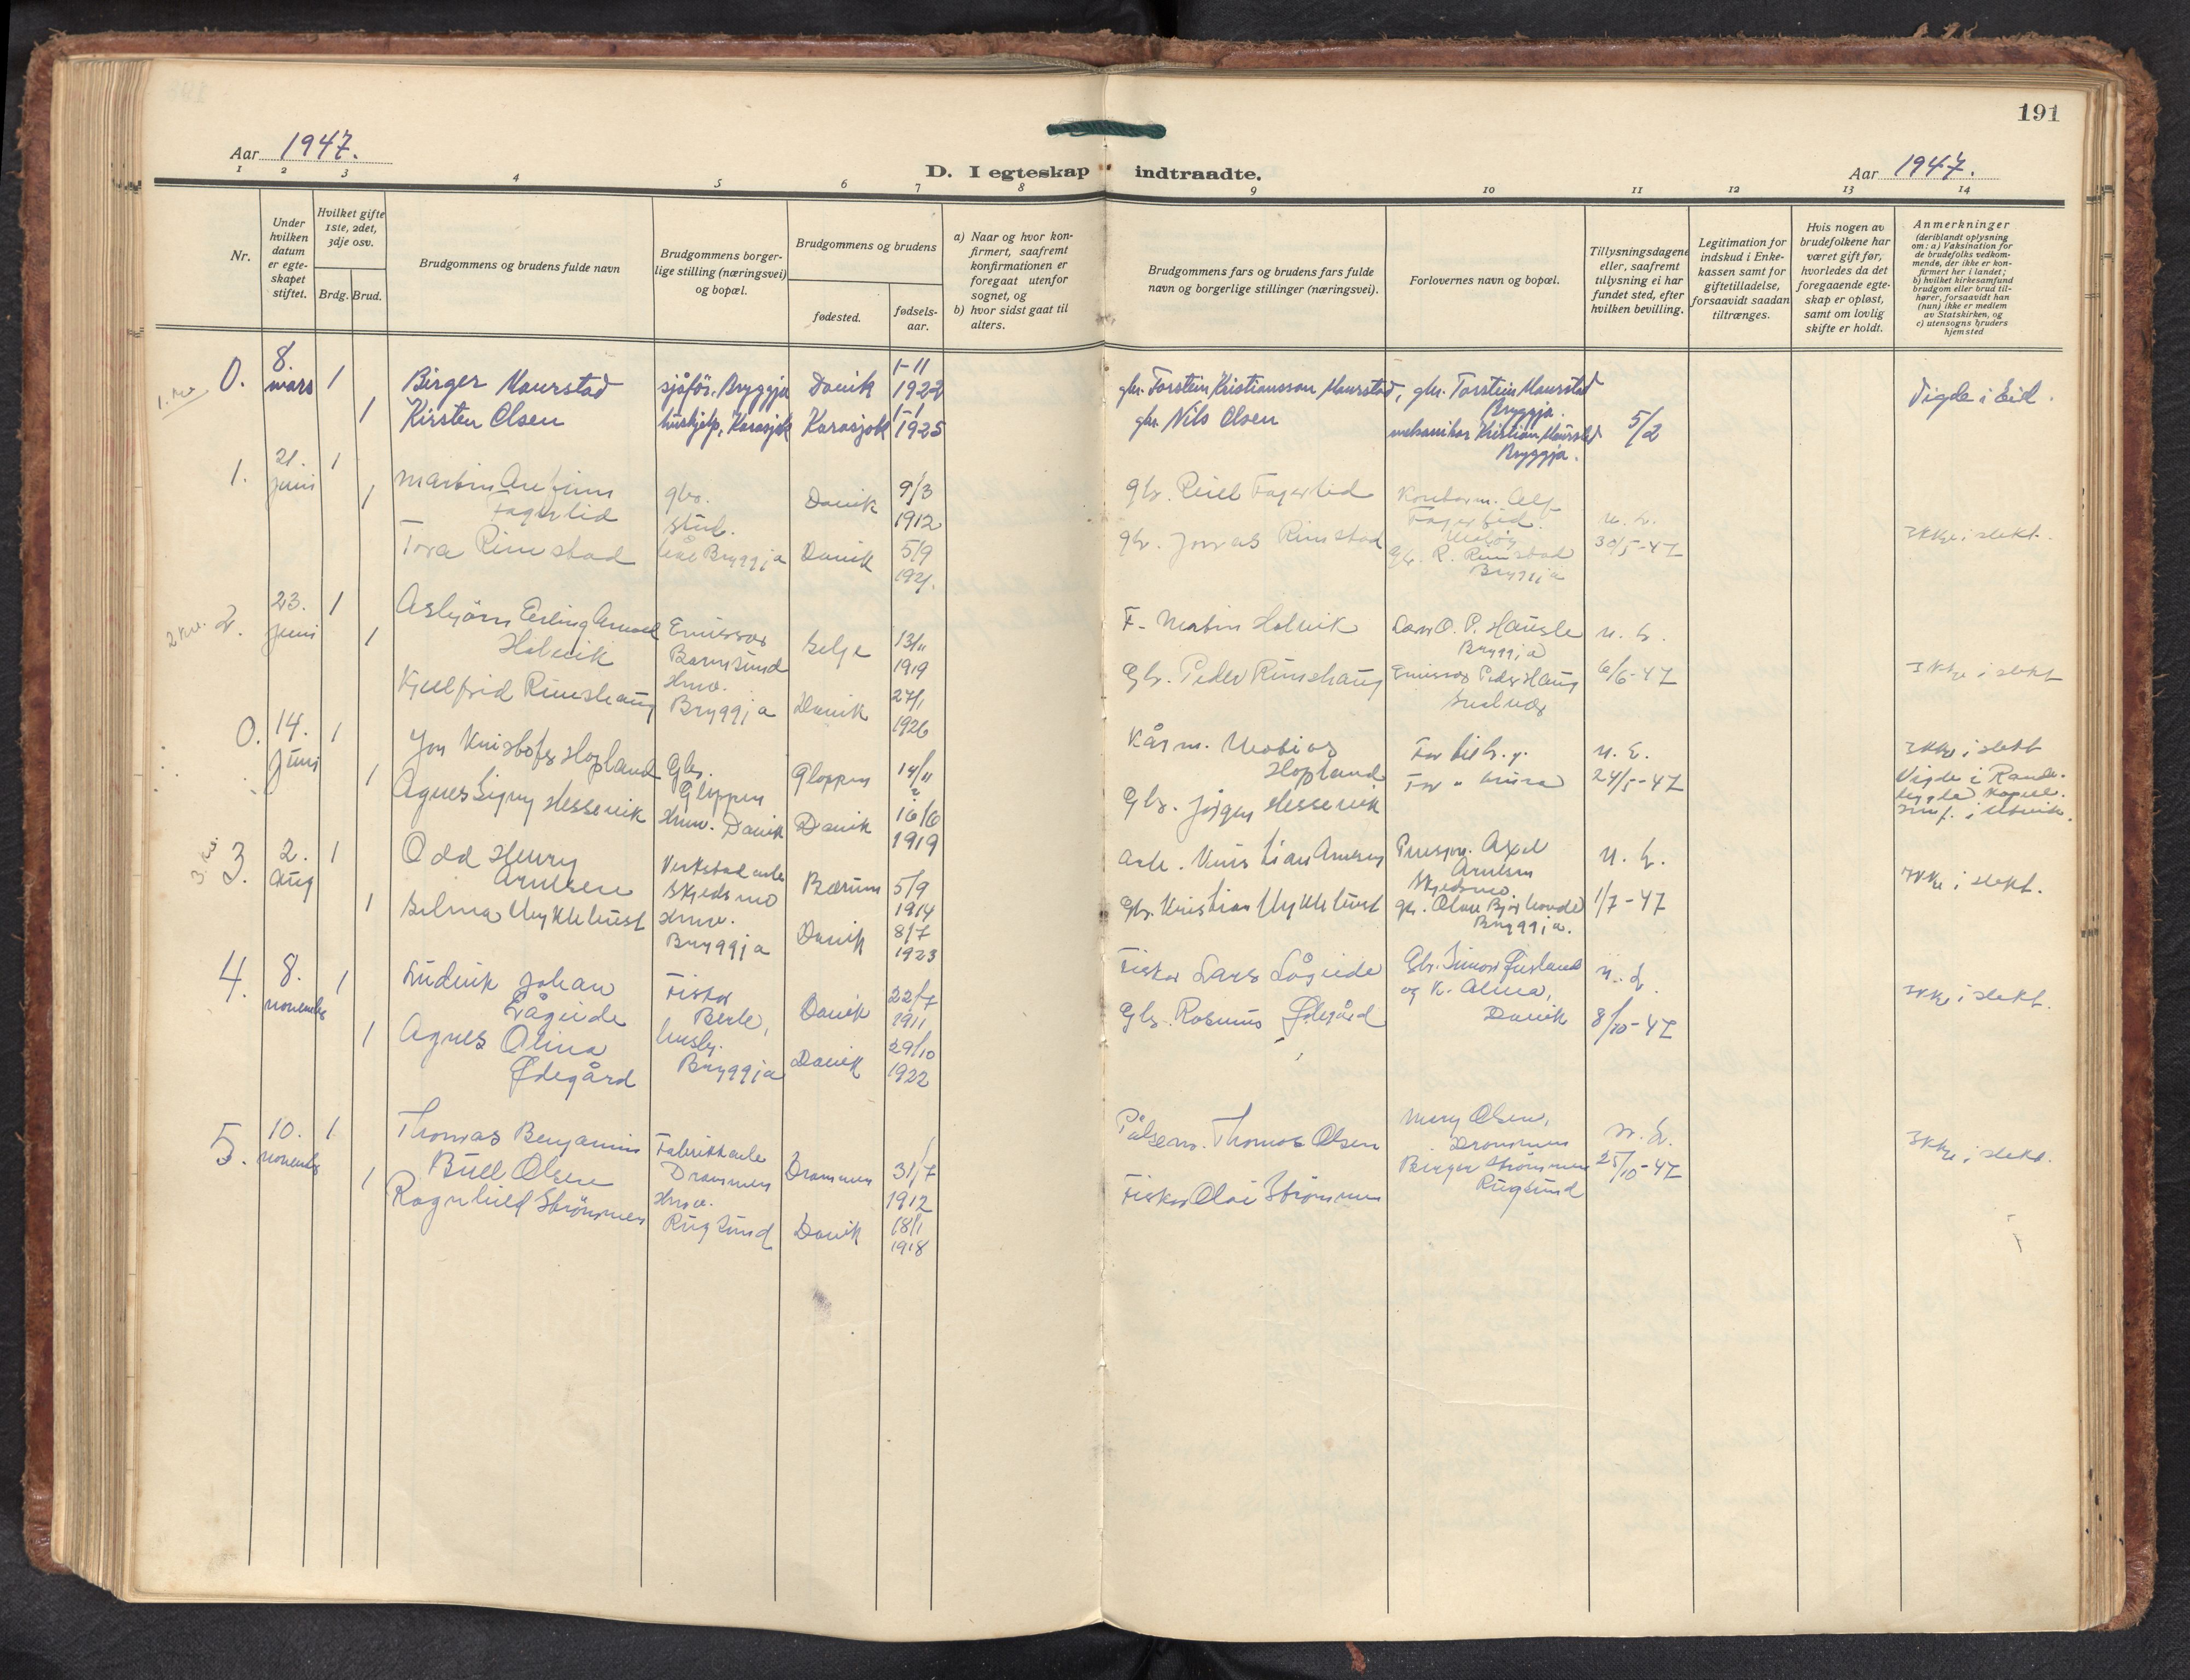 191
Aar 1947.
Aar 1947.
D. I egteskap indtraadte.
1 2 3 4 5 6 7 8 9 10 11 12 13 14
Nr.
Under hvilken datum er egteskapet stiftet.
Hvilket gifte 1ste, 2det, 3dje osv.
Brdg. Brud.
Brudgommens og brudens fulde navn
Brudgommens borgerlige stilling (næringsvei) og bopæl.
Brudgommens og brudens
fødested.
fødselsaar.
a) Naar og hvor konfirmert, saafremt konfirmationen er foregaat utenfor sognet, og
b) hvor sidst gaat til alters.
Brudgommens fars og brudens fars fulde navn og borgerlige stillinger (næringsvei).
Forlovernes navn og bopæl.
Tillysningsdagene eller, saafremt tillysning ei har fundet sted, efter hvilken bevilling.
Legitimation for indskud i Enkekassen samt for giftetilladelse, forsaavidt saadan tiltrænges.
Hvis nogen av brudefolkene har været gift før, hvorledes da det foregaaende egteskap er opløst, samt om lovlig skifte er holdt.
Anmerkninger
(deriblandt oplysning om: a) Vaksination for de brudefolks vedkommende, der ikke er konfirmert her i landet;
b) hvilket kirkesamfund brudgom eller brud tilhører, forsaavidt han (hun) ikke er medlem av Statskirken, og
c) utensogns bruders hjemsted
0. 8. mars 1 Birger Maurstad sjåfør. Bryggja Davik 1-11 1922 gbr. Torstein Kristiansson Maurstad, gbr. Torstein Maurstad Bryggja. Vigde i Eid.
1 Kirsten Olsen hushjelp, Karasjok Karasjok 1-1 1925 gbr. Nils Olsen mekanikar Kristian Maurstad Bryggja. 5/2
1. 21. juni 1 Martin Fagerlid gbr. Davik 9/3 1912 gbr. Fagerlid Alf Fagerlid.
1 Tora Rimstad Bryggja Davik 5/9 1921. gbr. Jonas Rimstad gbr. R. Rimstad Bryggja 30/5-47 Ikke i slekt.
2 kv. 2. 23. juni 1 Asbjörn Erling Holvik Emissær Barmsund Selje 13/11 1919 F. Martin Holvik Lars O. P. Bryggja
1 Kjellfrid Rimshaug Hmv. Bryggja Davik 27/1 1926 Gbr. Peder Rimshaug Emissær Peder Haug 6/6-47 Ikke i slekt
0. 14. Juni 1 Jon Kristofer Hopland Gbr. Gloppen Gloppen 14/11 ? Hopland Ikke i slekt
1 Agnes Signy Hessevik Hmv. Davik Davik 16/6 1919 Gbr. Jörgen Hessevik 24/5-47 Vigde i
3. 2. aug 1 Odd Henry Arntsen Verkstad arb. Skjedsmo Bærum 5/9 1914 Arb. Kristian Arntsen Axel Arntsen Skjedsmo.
1 Selma Myklebust Hmv. Bryggja Davik 8/7 1923 Gbr. Kristian Myklebust gbr. Olav Bryggja. 1/7-47 Ikke i slekt.
4. 8. november 1 Ludvik Johan Lågeide Fisker Berle, Davik 22/7 1911 Fisker Lars Lågeide Gbr. Simon og K. Alma, Davik
1 Agnes Olina Ødegård Bryggja Davik 29/10 1922 Gbr. Rasmus Ødegård 8/10-47 Ikke i slekt.
5. 10. november 1 Thomas Benjamin Bull Olsen Fabrikkarb. Drammen Drammen 31/7 1912 Thomas Olsen Mary Olsen, Drammen
1 Ragnhild Strömmen Hmv. Rugsund Davik 18/1 1918 Fisker Olai Strömmen Birger Strömmen Rugsund 25/10-47 Ikke i slekt.